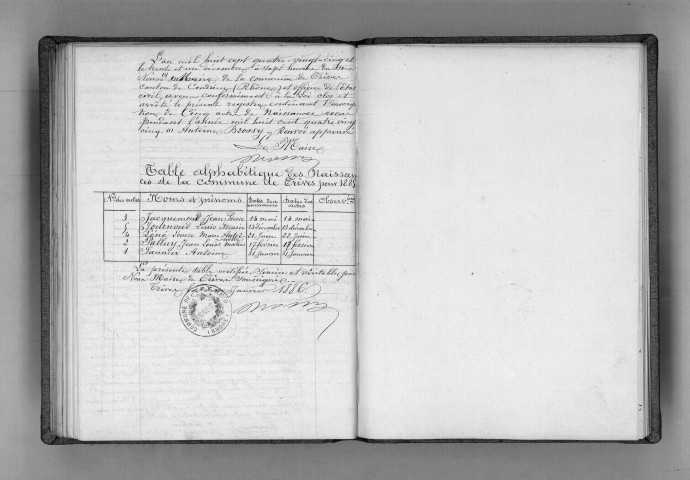 L'an mil huit cent quatre-vingt-cinq et
le trente et un décembre, à sept heures du soir
Nous, Maire, de la commune de Trèves
Canton de Condrieu (Rhône) et officier de l'état
civil, avons conformément à la Loi clos et
arrêté le présent registre contenant l'inscrip
tion de Cinq actes de Naissances reçus
pendant l'année mil huit cent quatre vingt
cinq. Antoine Brossy, Renvoi approuvé
Le Maire
Table alphabétique des Naissan
ces de la commune de Trèves pour 1885
Nos des actes Noms et prénoms Dates des naissances Dates des actes Observons
3 Jacquemond Jean Pierre 14 mai 14 mai
5 Journoud Louis Marie 13 décembre 13 décembre
4 Louise Marie 21 Juin 22 Juin
2 Jean Louis Marie 17 février 17 février
1 Antoine 11 Janvier 11 Janvier
La présente table certifiée sincère et véritable par
Nous Maire de Trèves soussigné
Trèves Janvier 1886
COMMUNE DE TRÈVES (RHÔNE)